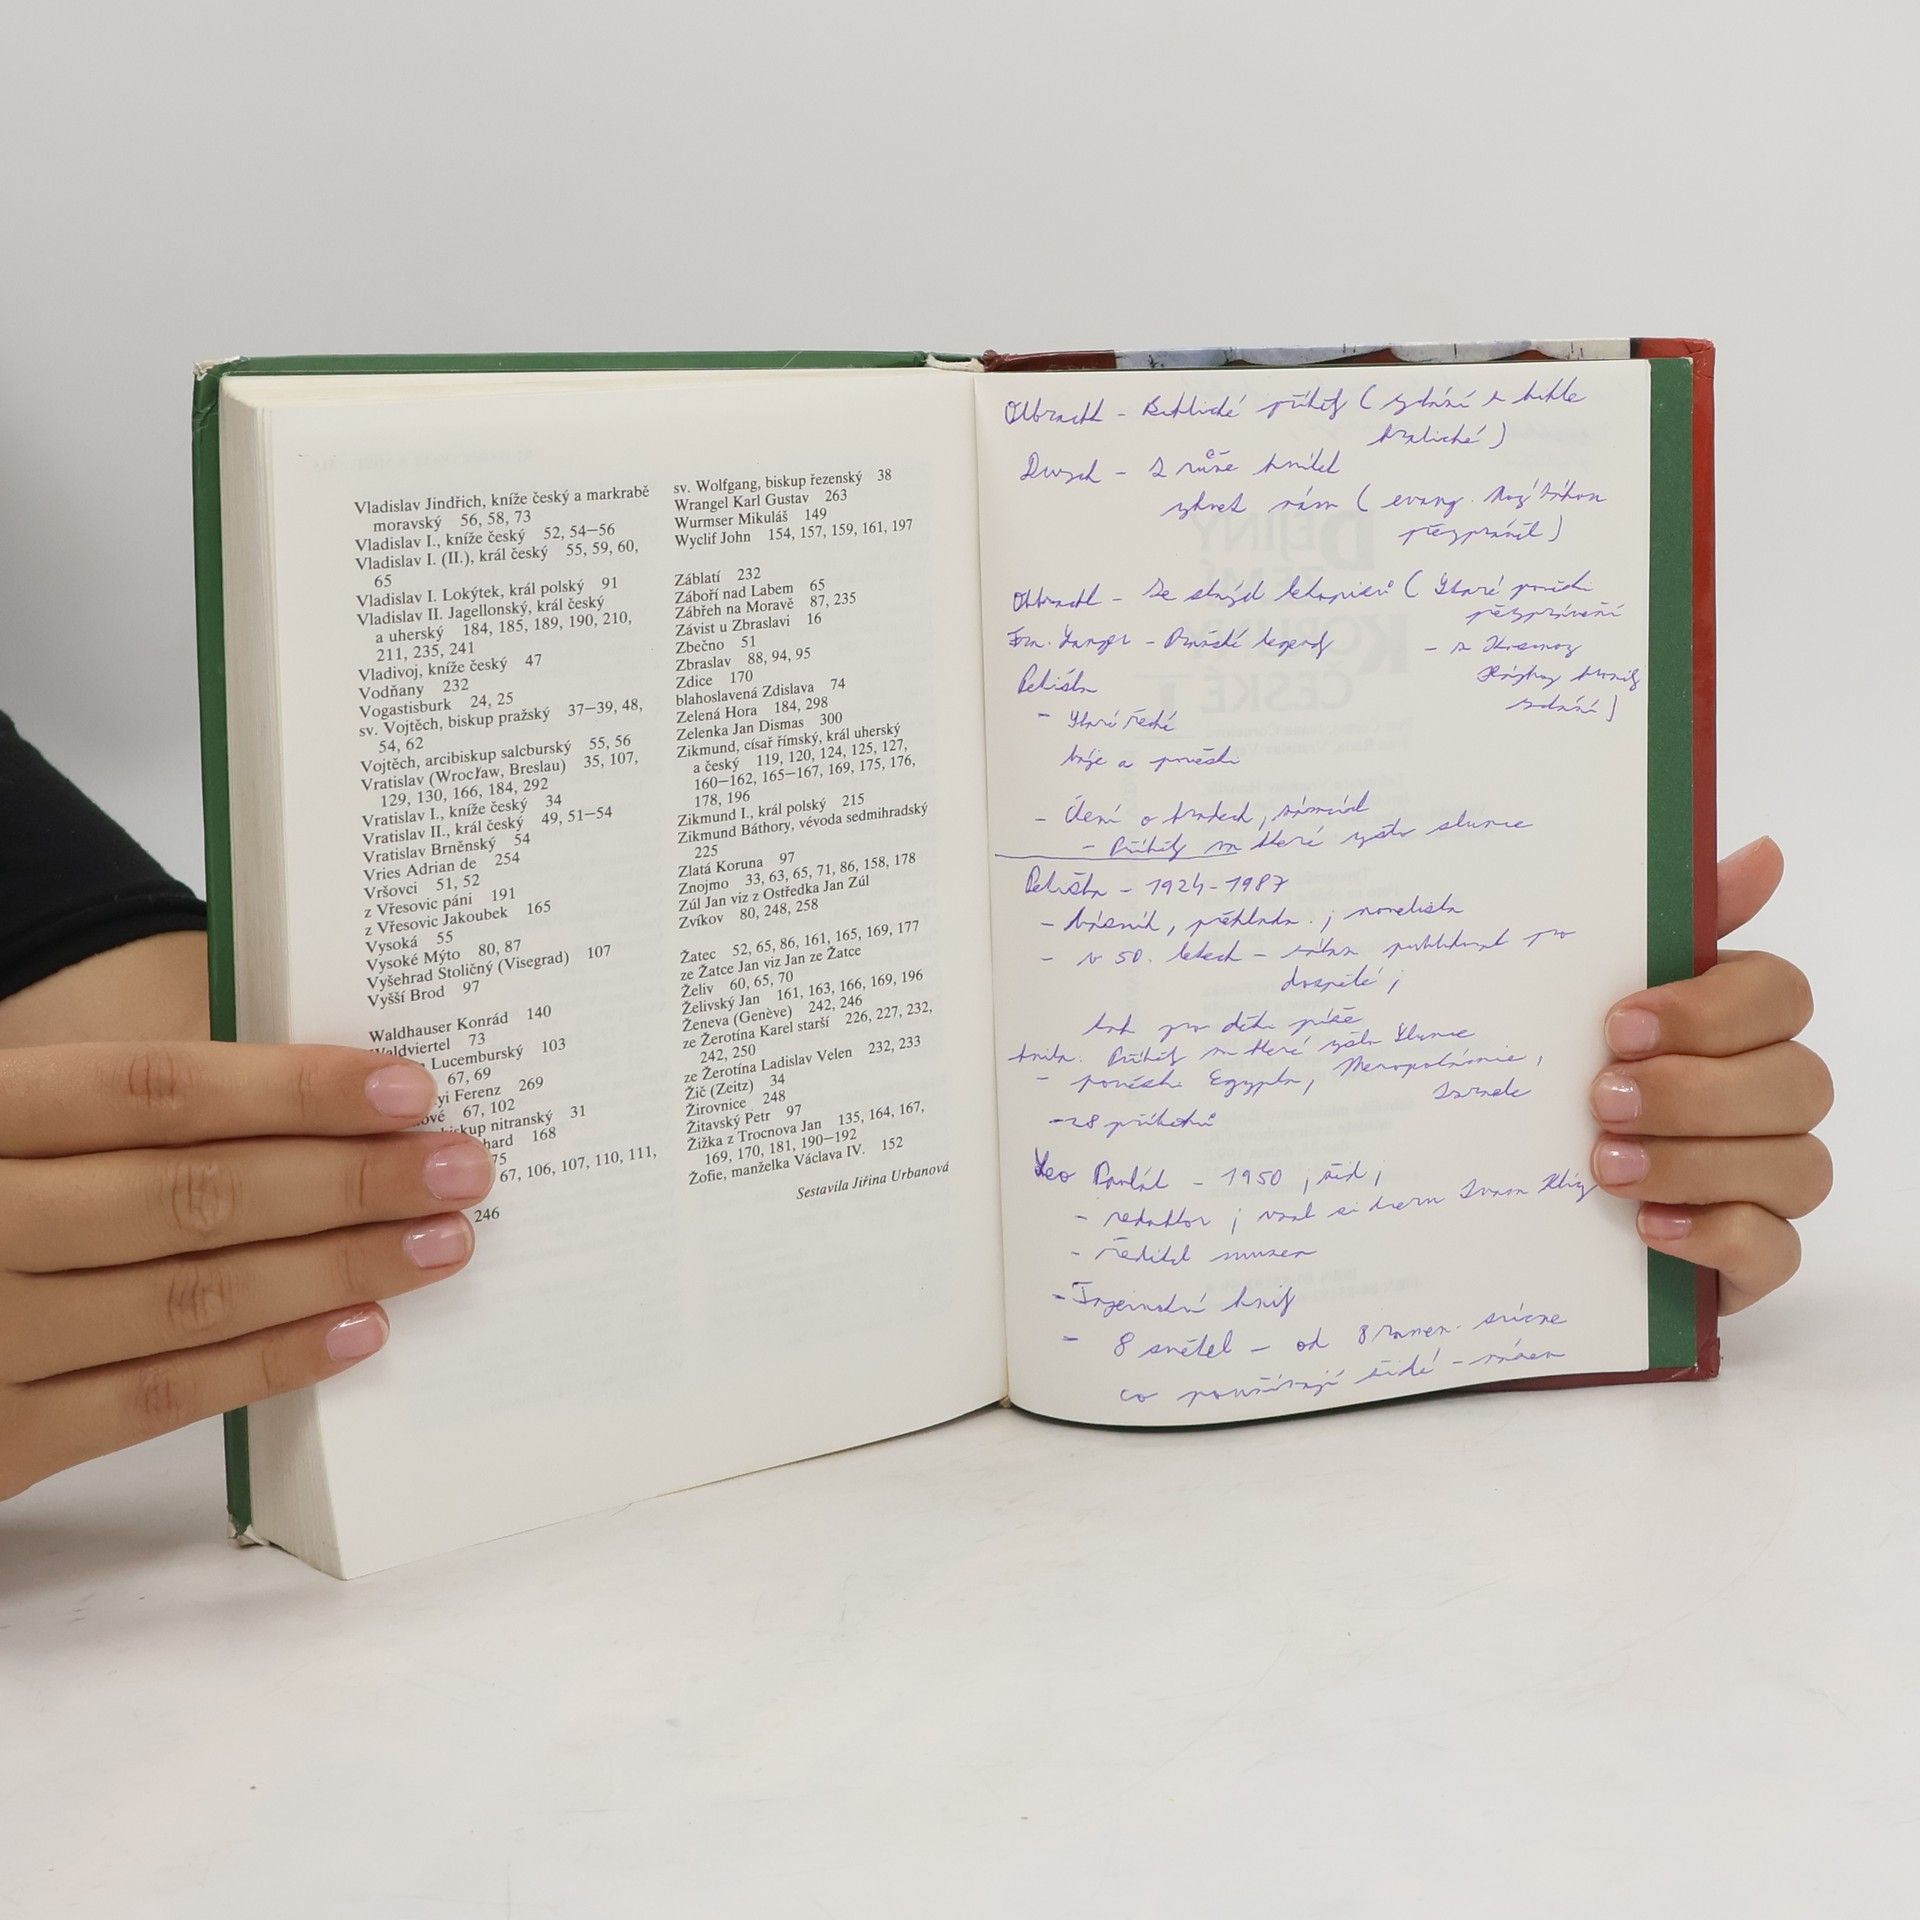 Vladislav Jindřich, kníže český a markrabě
moravský 56, 58, 73
Vladislav I., kníže český 52, 54–56
Vladislav I. (II.), král český 55, 59, 60,
65
Vladislav I. Lokýtek, král polský 91
Vladislav II. Jagellonský, král český
a uherský 184, 185, 189, 190, 210,
211, 235, 241
Vladivoj, kníže český 47
Vodňany 232
Vogastisburk 24, 25
sv. Vojtěch, biskup pražský 37–39, 48,
54, 62
Vojtěch, arcibiskup salcburský 55, 56
Vratislav (Wrocław, Breslau) 35, 107,
129, 130, 166, 184, 292
Vratislav I., kníže český 34
Vratislav II., král český 49, 51–54
Vratislav Brněnský 54
Vries Adrian de 254
Vršovci 51, 52
z Vřesovic páni 191
z Vřesovic Jakoubek 165
Vysoká 55
Vysoké Mýto 80, 87
Vyšehrad Stoličný (Visegrad) 107
Vyšší Brod 97
Waldhauser Konrád 140
Waldviertel 73
Lucemburský 103
67, 69
yi Ferenz 269
ové 67, 102
biskup nitranský 31
hard 168
75
67, 106, 107, 110, 111,
246
sv. Wolfgang, biskup řezenský 38
Wrangel Karl Gustav 263
Wurmser Mikuláš 149
Wyclif John 154, 157, 159, 161, 197
Záblatí 232
Záboří nad Labem 65
Zábřeh na Moravě 87, 235
Závist u Zbraslavi 16
Zbečno 51
Zbraslav 88, 94, 95
Zdice 170
blahoslavená Zdislava 74
Zelená Hora 184, 298
Zelenka Jan Dismas 300
Zikmund, císař římský, král uherský
a český 119, 120, 124, 125, 127,
160–162, 165–167, 169, 175, 176,
178, 196
Zikmund I., král polský 215
Zikmund Báthory, vévoda sedmihradský
225
Zlatá Koruna 97
Znojmo 33, 63, 65, 71, 86, 158, 178
Zúl Jan viz z Ostředka Jan Zúl
Zvíkov 80, 248, 258
Žatec 52, 65, 86, 161, 165, 169, 177
ze Žatce Jan viz Jan ze Žatce
Želiv 60, 65, 70
Želivský Jan 161, 163, 166, 169, 196
Ženeva (Genève) 242, 246
ze Žerotína Karel starší 226, 227, 232,
242, 250
ze Žerotína Ladislav Velen 232, 233
Žič (Zeitz) 34
Žirovnice 248
Žitavský Petr 97
Žižka z Trocnova Jan 135, 164, 167,
169, 170, 181, 190–192
Žofie, manželka Václava IV. 152
Sestavila Jiřina Urbanová
Olbracht – Biblické příběhy (vydání z bible
kralické)
– Z růže kvítek
vykvet nám (evang.
převyprávěl)
Olbracht – Ze starých letopisů (Staré pověsti
převyprávění
Fr. Langer – Pražské legendy – z Kosmovy
Hájkovy kroniky
vydání)
Petiška
– Staré řecké
báje a pověsti
– Čtení o hradech, zámcích
– Příběhy na které svítilo slunce
Petiška – 1924–1987
– básník, překlada. ; novelista
– v 50. letech – publikovat pro
dospělé ;
tak pro děti píše
kniha. Příběhy na které svítilo Slunce
– pověsti Egypta, Mezopotámie,
Izraele
– 28 příběhů
Leo Pavlát – 1950 ; žid ;
– redaktor ; vzal si dceru Ivana Klímy
– ředitel muzea
– Tajemství knihy
– 8 světel – od 8 ramen. svícne
co používají židé –